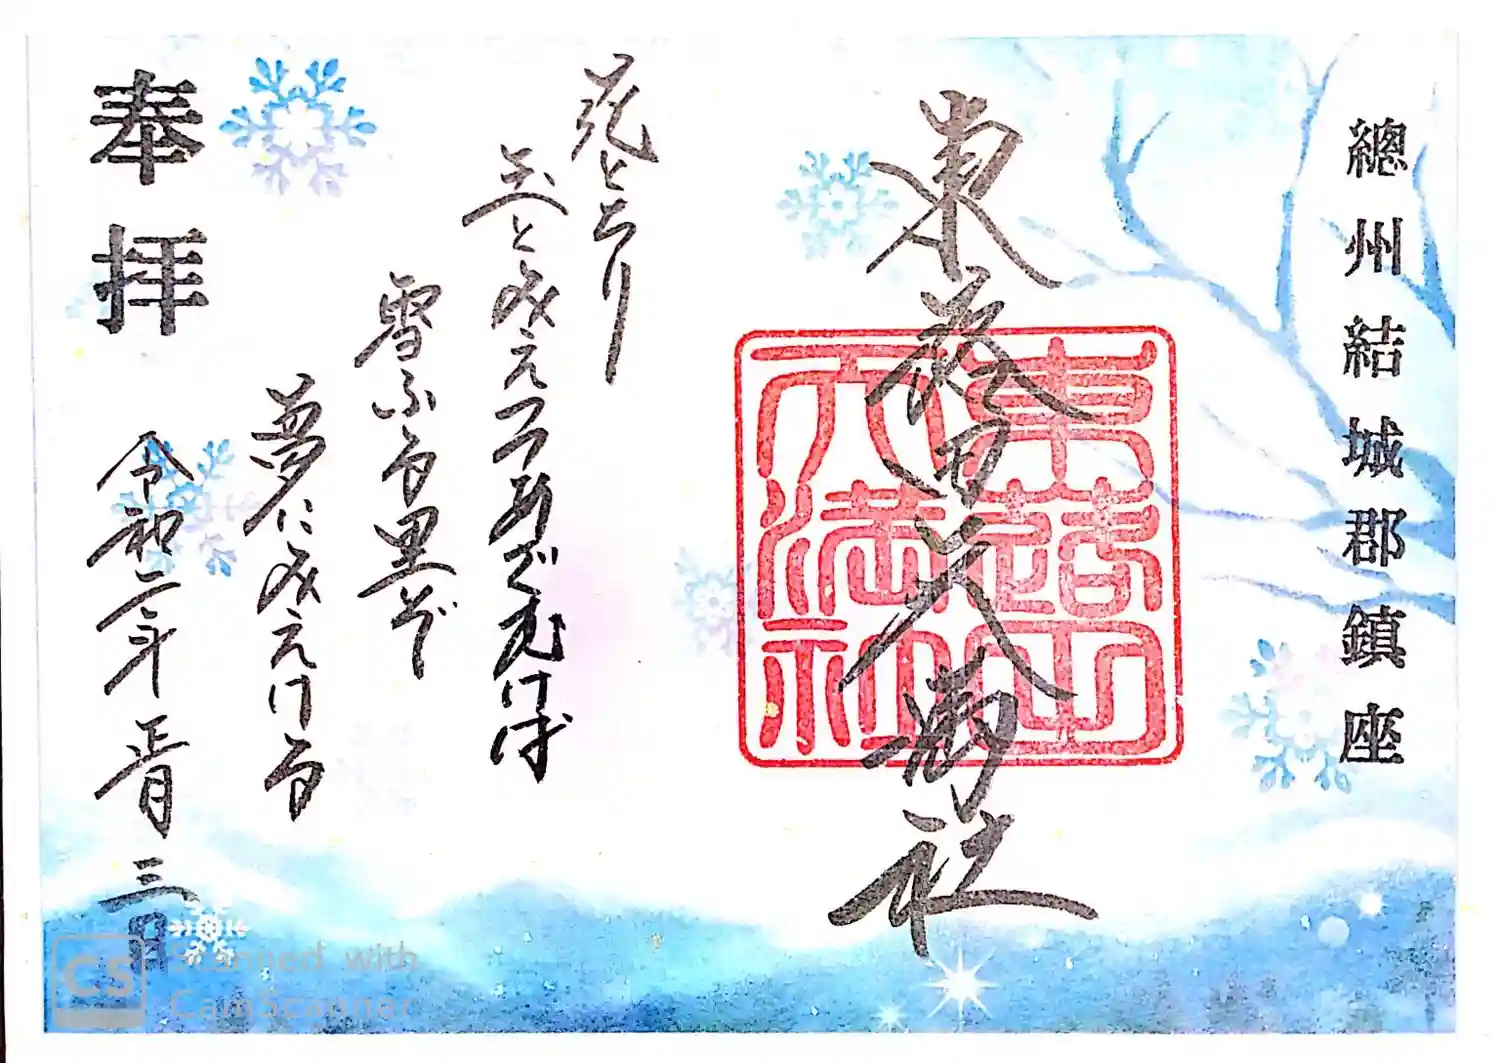 總州結城郡鎮座
東蕗田天満社
東蕗田天満社
花とちり
玉と見えつつあざむけば
雪ふる里ぞ
夢に見えける
奉拝
令和二年正月三日
CS Scanned with
CamScanner